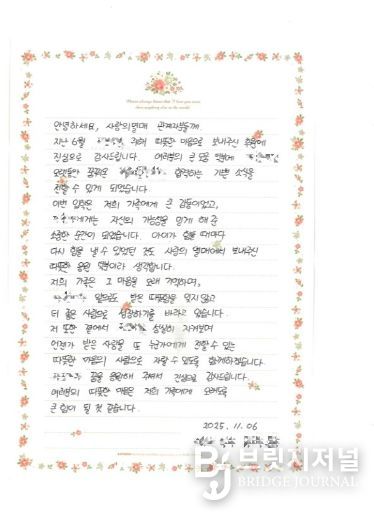 안녕하세요, 사랑의열매 관계자분들께.
지난 6월 위해 따뜻한 마음으로 보내주신 후원에
진심으로 감사드립니다. 여러분의 큰 도움 덕분에
오랫동안 꿈꿔온 합격하는 기쁜 소식을
전할 수 있게 되었습니다.
이번 입학은 저희 가족에게 큰 감동이었고,
에게는 자신의 가능성을 믿게 해 준
소중한 순간이 되었습니다. 아이가 힘들 때마다
다시 힘을 낼 수 있었던 것도 사랑의 열매에서 보내주신
따뜻한 응원 덕분이라 생각합니다.
저희 가족은 그 마음을 오래 기억하며,
앞으로도 받은 따뜻함을 잊지 않고
더 좋은 사람으로 성장하기를 바라고 있습니다.
저 또한 곁에서 성실히 지켜보며
언젠가 받은 사랑을 또 누군가에게 전할 수 있는
따뜻한 마음의 사람으로 자랄 수 있도록 함께하겠습니다.
꿈을 응원해 주셔서 진심으로 감사드립니다.
여러분의 따뜻한 마음은 저희 가족에게 오래도록
큰 힘이 될 것 같습니다.
2025. 11. 06
BJ 브릿지저널
BRIDGE JOURNAL